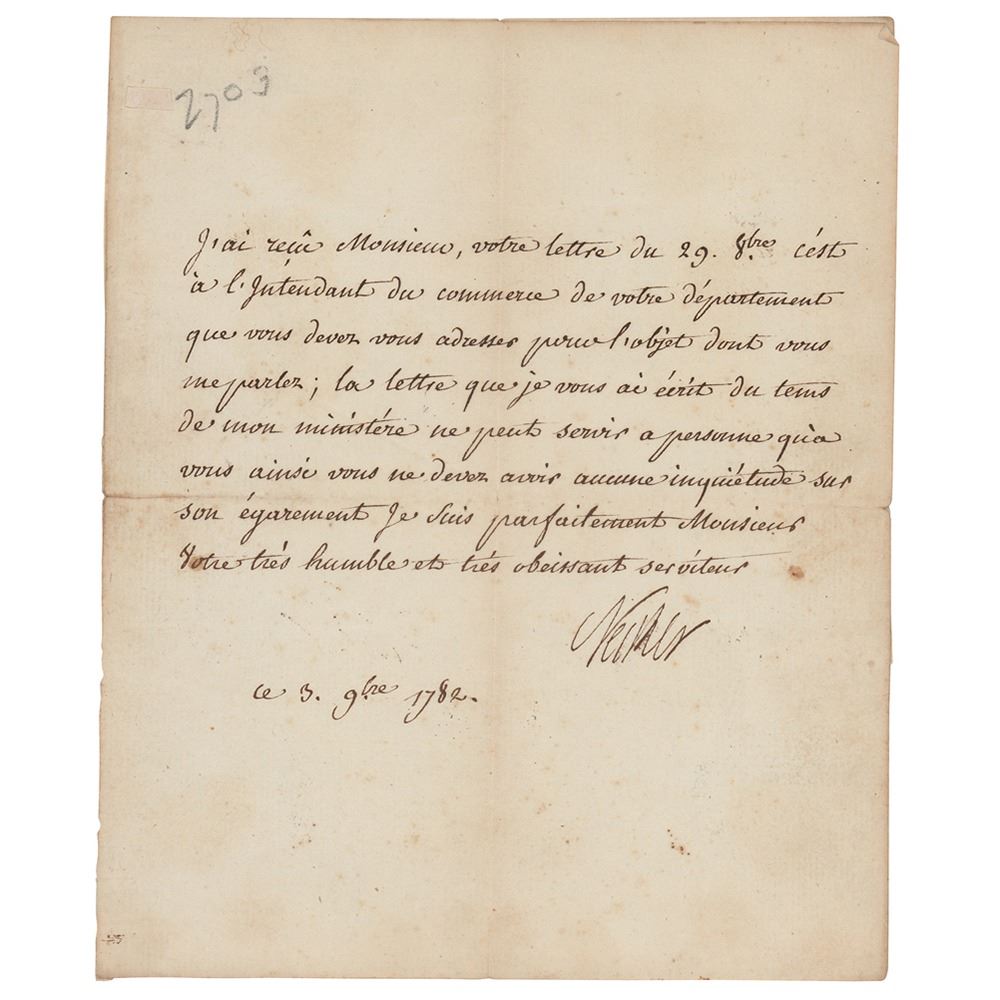 2703
J'ai reçû Monsieur, votre lettre du 29. 8.bre c'est
à l'Intendant du commerce de votre département
que vous devez vous adresser pour l'objèt dont vous
me parlez ; la lettre que je vous ai écrit du tems
de mon ministére ne peut servir a personne qu'a
vous ainsi vous ne devez avoir aucune inquiétude sur
son égarement Je suis parfaitement Monsieur
Votre trés humble et trés obeissant serviteur
Necker
ce 3. 9.bre 1782.